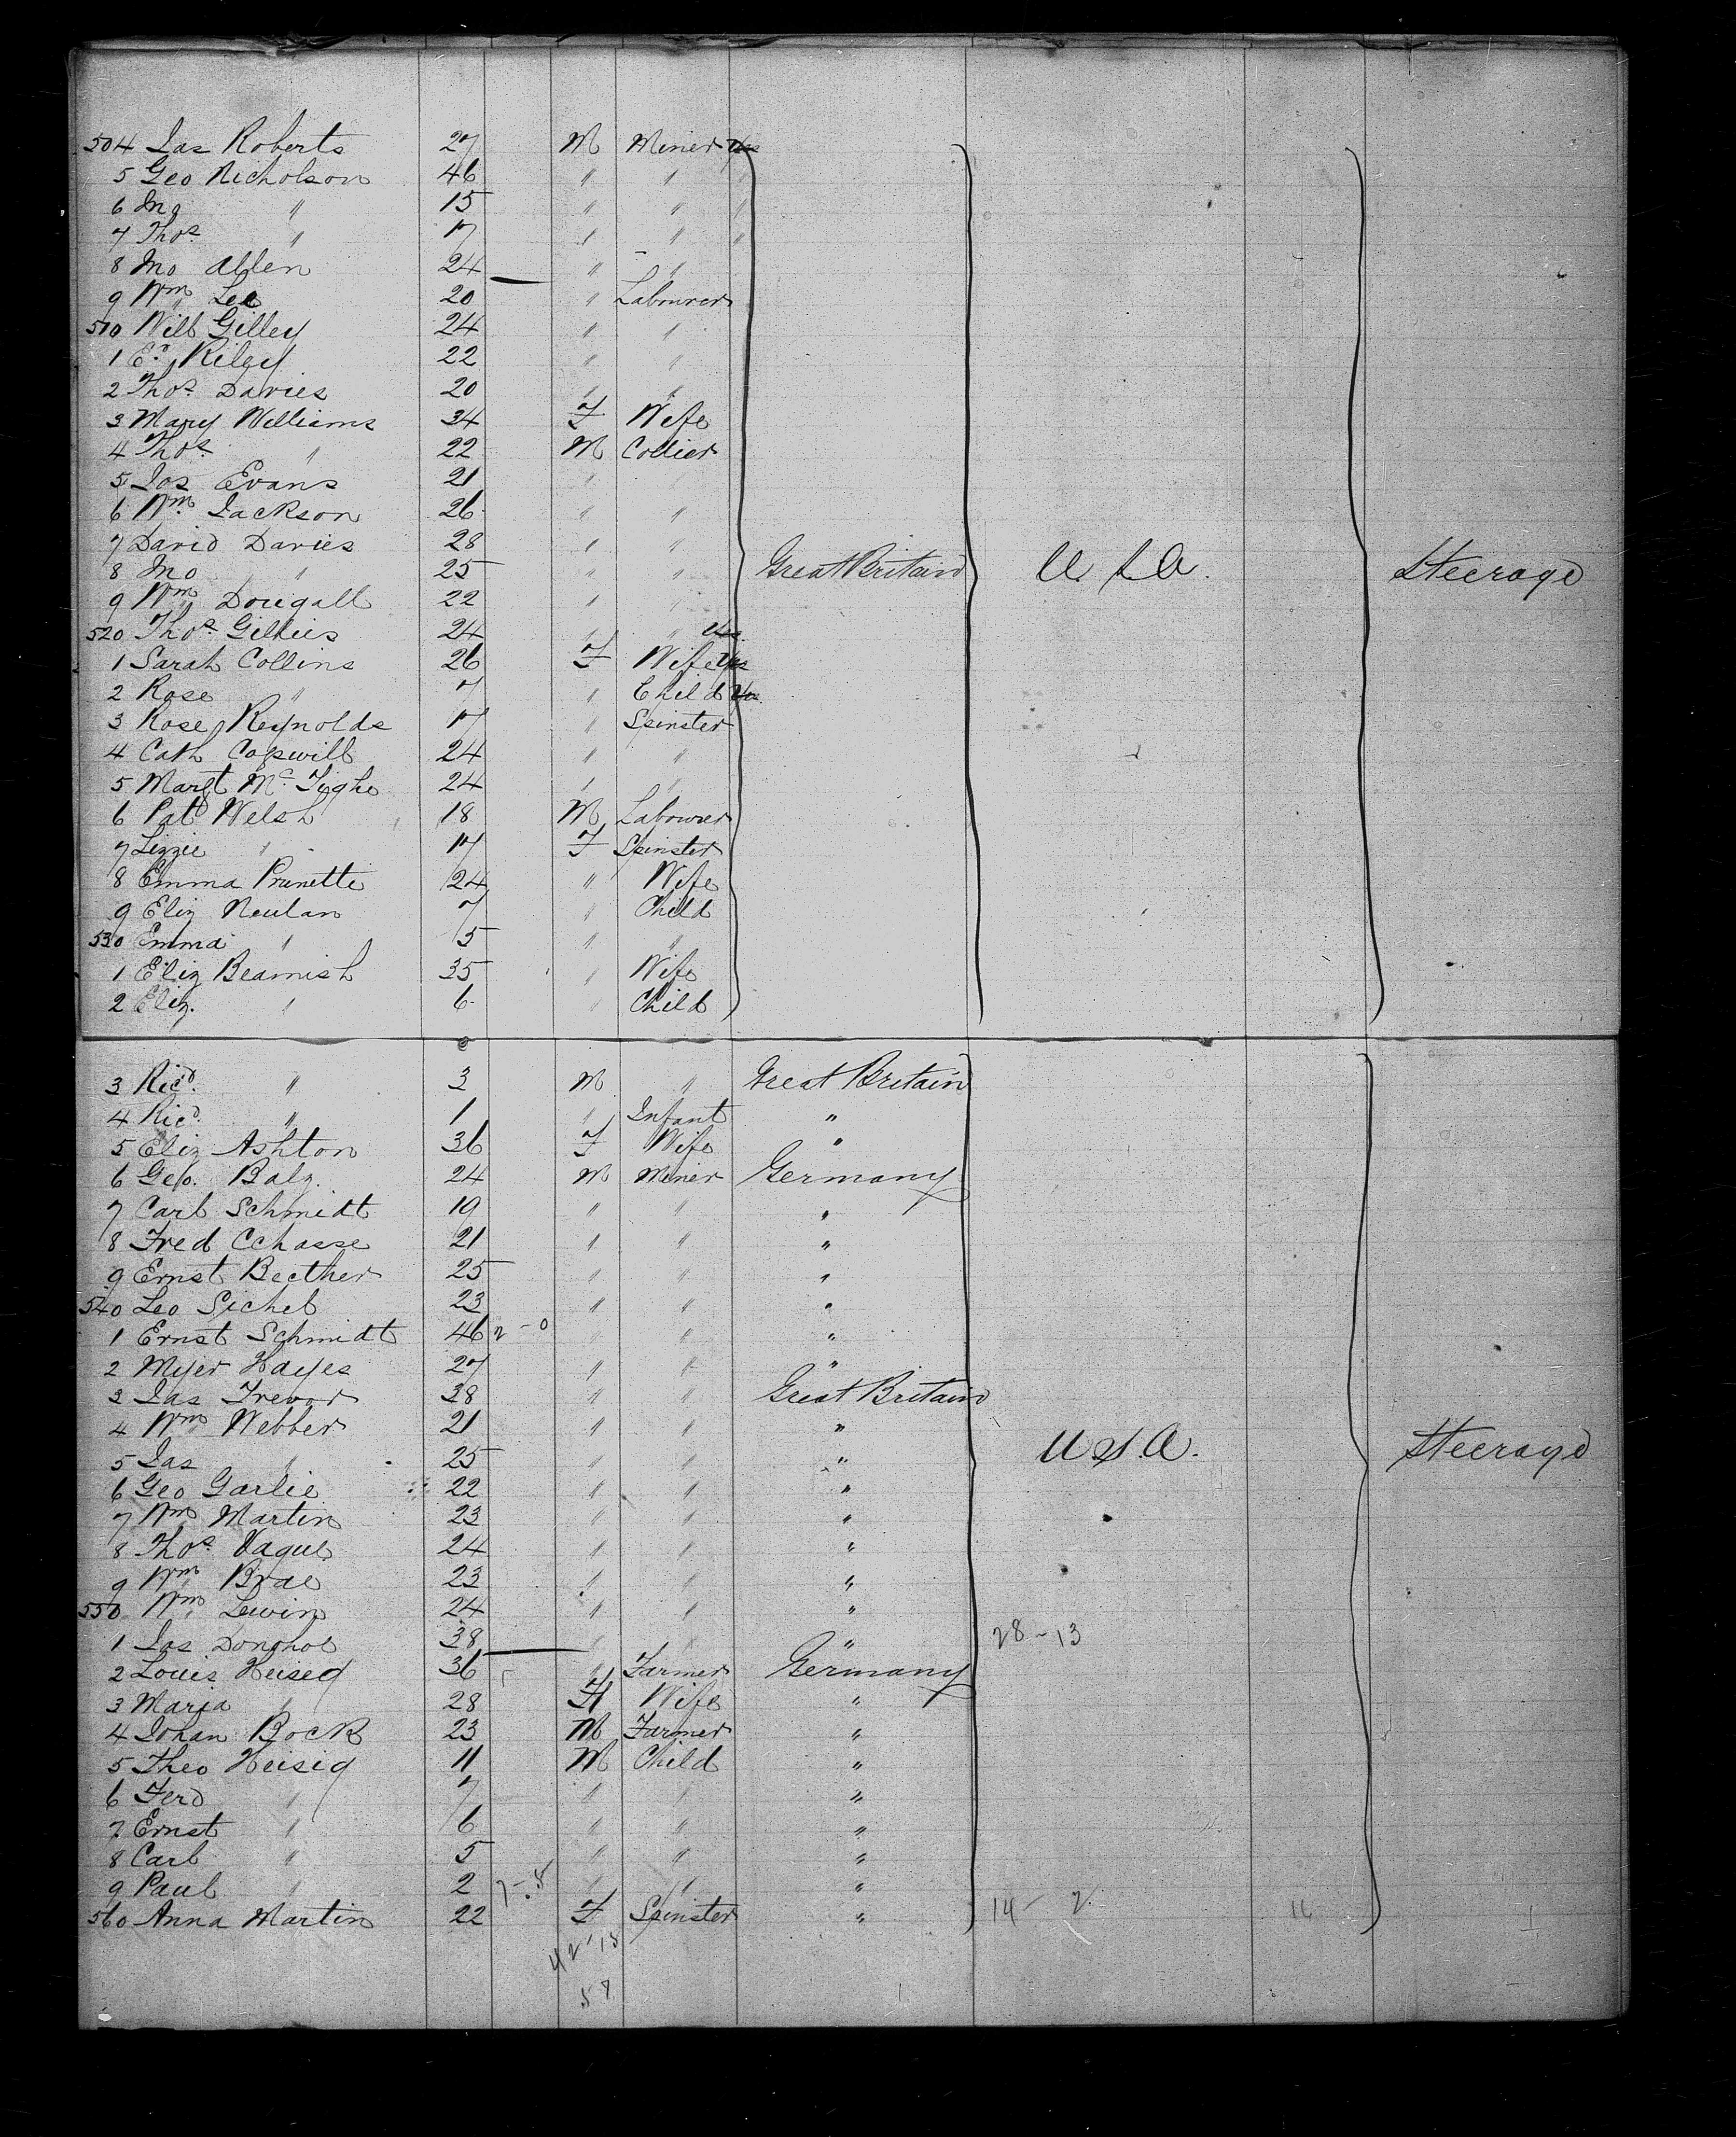 504 Jas Roberts 27 M Miner Yes
5 Geo Nicholson 46 " " "
6 Jno " 15 " " "
7 Thos. " 17 " " "
8 Jno Allen 24 " "
9 Wm Lee 20 " Labourer
510 Will Gilley 24 " "
1 Ed. Riley 22 " "
2 Thos. Davies 20 " "
3 Mary Williams 34 F Wife
4 Thos. " 22 M Collier
5 Jos Evans 21 "
6 Wm. Jackson 26 " "
7 David Davies 28 " "
8 Jno " 25 " " Great Britain U S A. Steerage
9 Wm Dougall 22 " "
520 Thos. Gillies 24 " " Yes
1 Sarah Collins 26 F Wife Yes
2 Rose " 7 " Child Yes
3 Rose Reynolds 17 " Spinster
4 Cath 24 " "
5 Margt Mc Tighe 24 " "
6 Patk Welsh 18 M Labourer
7 Lizzie " 17 F Spinster
8 Emma Prunette 24 " Wife
9 Eliz Neulan 7 " Child
530 Emma " 5 " "
1 Eliz Beamish 35 " Wife
2 Eliz. " 6 " Child
3 Ricd. " 3 M " Great Britain
4 Ricd. " 1 " Infant "
5 Eliz Ashton 36 F Wife "
6 Geo. Balz. 24 M Miner Germany
7 Carl Schmidt 19 " " "
8 Fred Cchasse 21 " " "
9 Ernst Becther 25 " " "
540 Leo Sichel 23 " " "
1 Ernst Schmidt 46 2-0 " " "
2 Myer Hayes 27 " " "
3 Jas Trevor 38 " " Great Britain
4 Wm Webber 21 " " "
5 Jas " 25 " " " U S. A. Steerage
6 Geo Garlie 22 " " "
7 Wm Martin 23 " " "
8 Thos. Vague 24 " " "
9 Wm Brae 23 " " "
550 Wm Lewin 24 " " "
1 Jas Donohoe 38 " " " 28-13
2 Louis Heiseg 36 " Farmer Germany
3 Maria " 28 F Wife "
4 Johan Bock 23 M Farmer "
5 Theo Heisig 11 M Child "
6 Ferd " 7 " " "
7 Ernst " 6 " " "
8 Carl " 5 " " "
9 Paul " 2 7-8 " " "
560 Anna Martin 22 F Spinster " 14-2
42-15
57